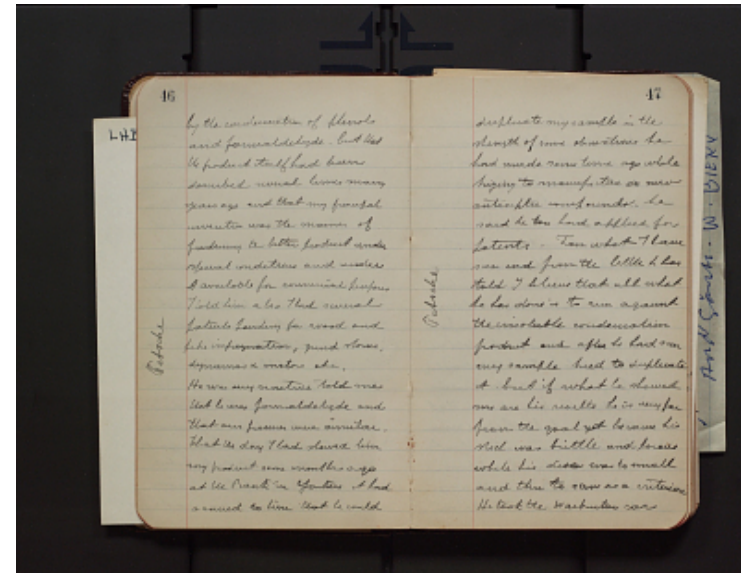 46
by the condensation of phenols
and formaldehyde. But that
the product itself had been
described several times many
years ago and that my principal
invention was the manner of
furnishing a better product under
special conditions and
available for commercial purposes
I told him also I had several
patents pending for wood and
impregnation, grind stones,
dynamos & motors etc.
He was very told me
that he uses formaldehyde and
that our process were similar.
That the day I had showed him
my product some months ago
at the in Yonkers it had
occured to him that he could
Petsche
47
duplicate my sample in the
strength of some observations he
had made some time ago while
trying to manufacture a new
antiseptic compounds. he
said he too had applied for
patents. From what I have
seen and from the little he has
told I believe that all what
he has done is to run against
the insoluble condensation
product and after he had seen
my sample tried to duplicate
it. but if what he showed
me are his results he is very far
from the goal yet because his
was brittle and
while his was too small
and thin to serve as a criterion
He took the car
Petsche
LHB